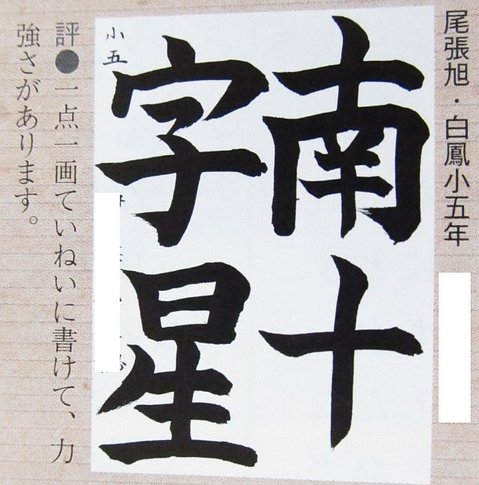 尾張旭・白鳳小五年
南十
字星
小五
評●一点一画ていねいに書けて、力
強さがあります。